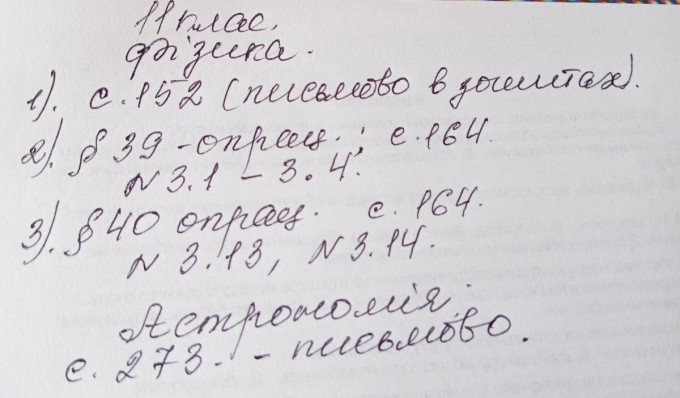 11 клас.
фізика.
1). с. 152 (письмово в зошитах).
2). § 39 - опрац.; с. 164.
N 3.1 - 3.4.
3). § 40 опрац. с. 164.
N 3.13, N 3.14.
Астрономія.
с. 273 - письмово.